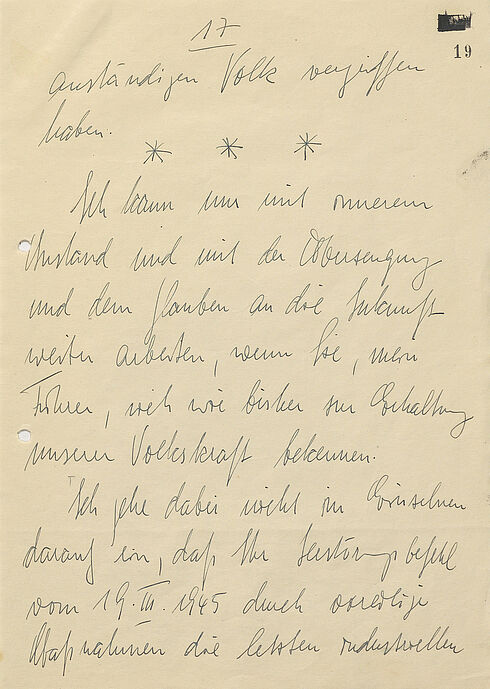 17
19
anständigen Volk vergriffen
haben.
* * *
Ich kann nur mit innerem
Anstand und mit der Überzeugung
und dem Glauben an die Zukunft
weiter arbeiten, wenn Sie, mein
Führer, sich wie bisher zur Erhaltung
unserer Volkskraft bekennen.
Ich gehe dabei nicht im Einzelnen
darauf ein, daß Ihr Zerstörungsbefehl
vom 19. III. 1945 durch voreilige
Maßnahmen die letzten industriellen